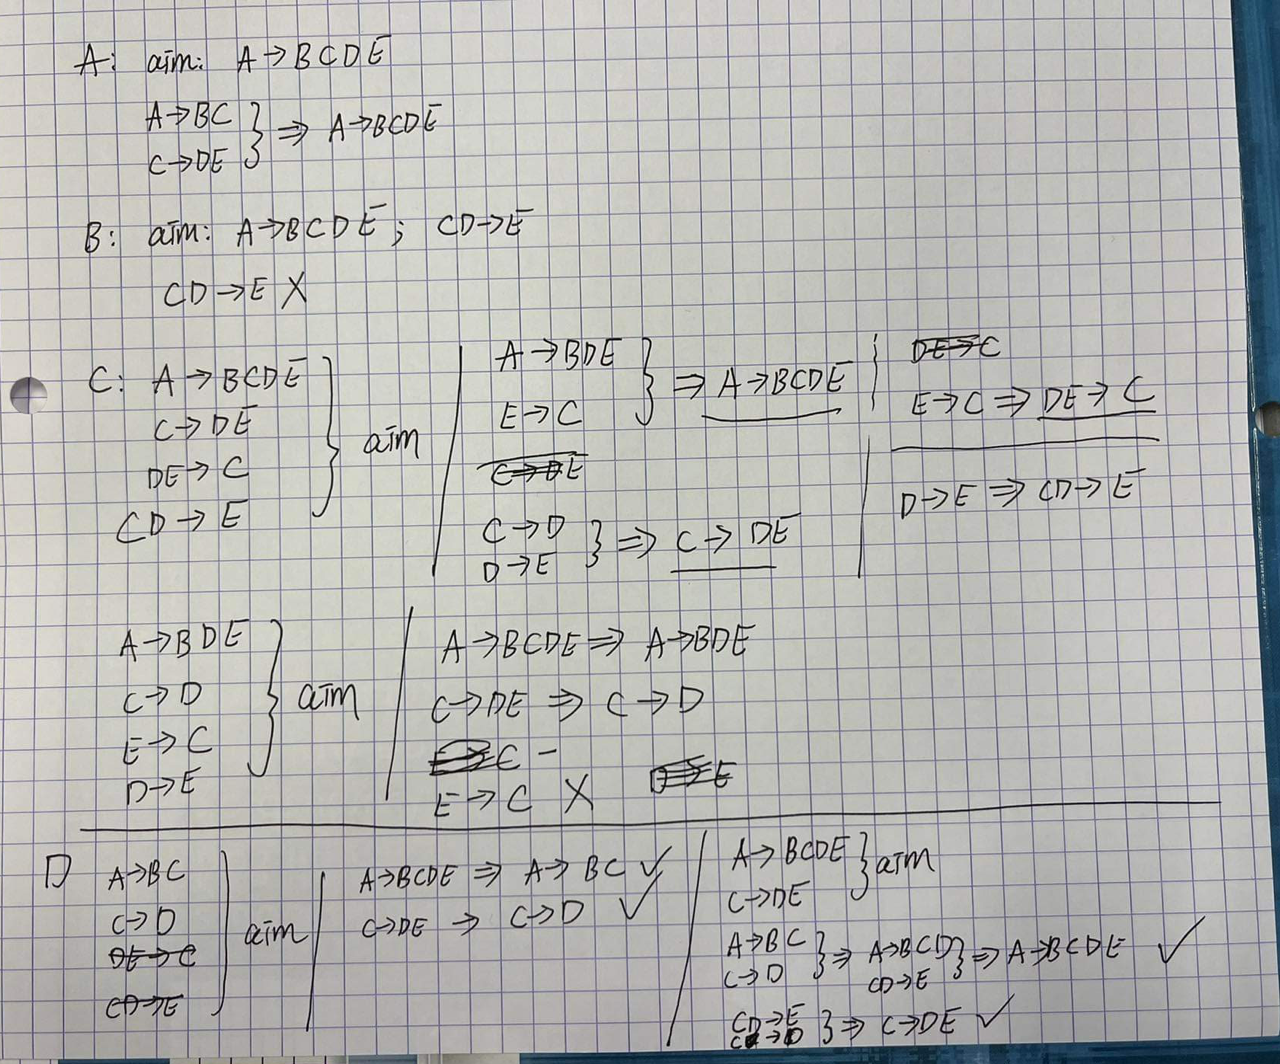 A: aim: A→BCDE
A→BC
C→DE } ⇒ A→BCDE
B: aim: A→BCDE; CD→E
CD→E X
C: A→BCDE
C→DE
DE→C
CD→E } aim
A→BDE
E→C } ⇒ A→BCDE
C→DE
C→D
D→E } ⇒ C→DE
DE→C
E→C ⇒ DE→C
D→E ⇒ CD→E
A→BDE
C→D
E→C
D→E } aim
A→BCDE ⇒ A→BDE
C→DE ⇒ C→D
E→C –
D→E
E→C X
D
A→BC
C→D
DE→C
CD→E } aim
A→BCDE ⇒ A→BC ✓
C→DE ⇒ C→D ✓
A→BCDE
C→DE } aim
A→BC
C→D } ⇒ A→BCD
CD→E } ⇒ A→BCDE ✓
CD→E
C→D } ⇒ C→DE ✓